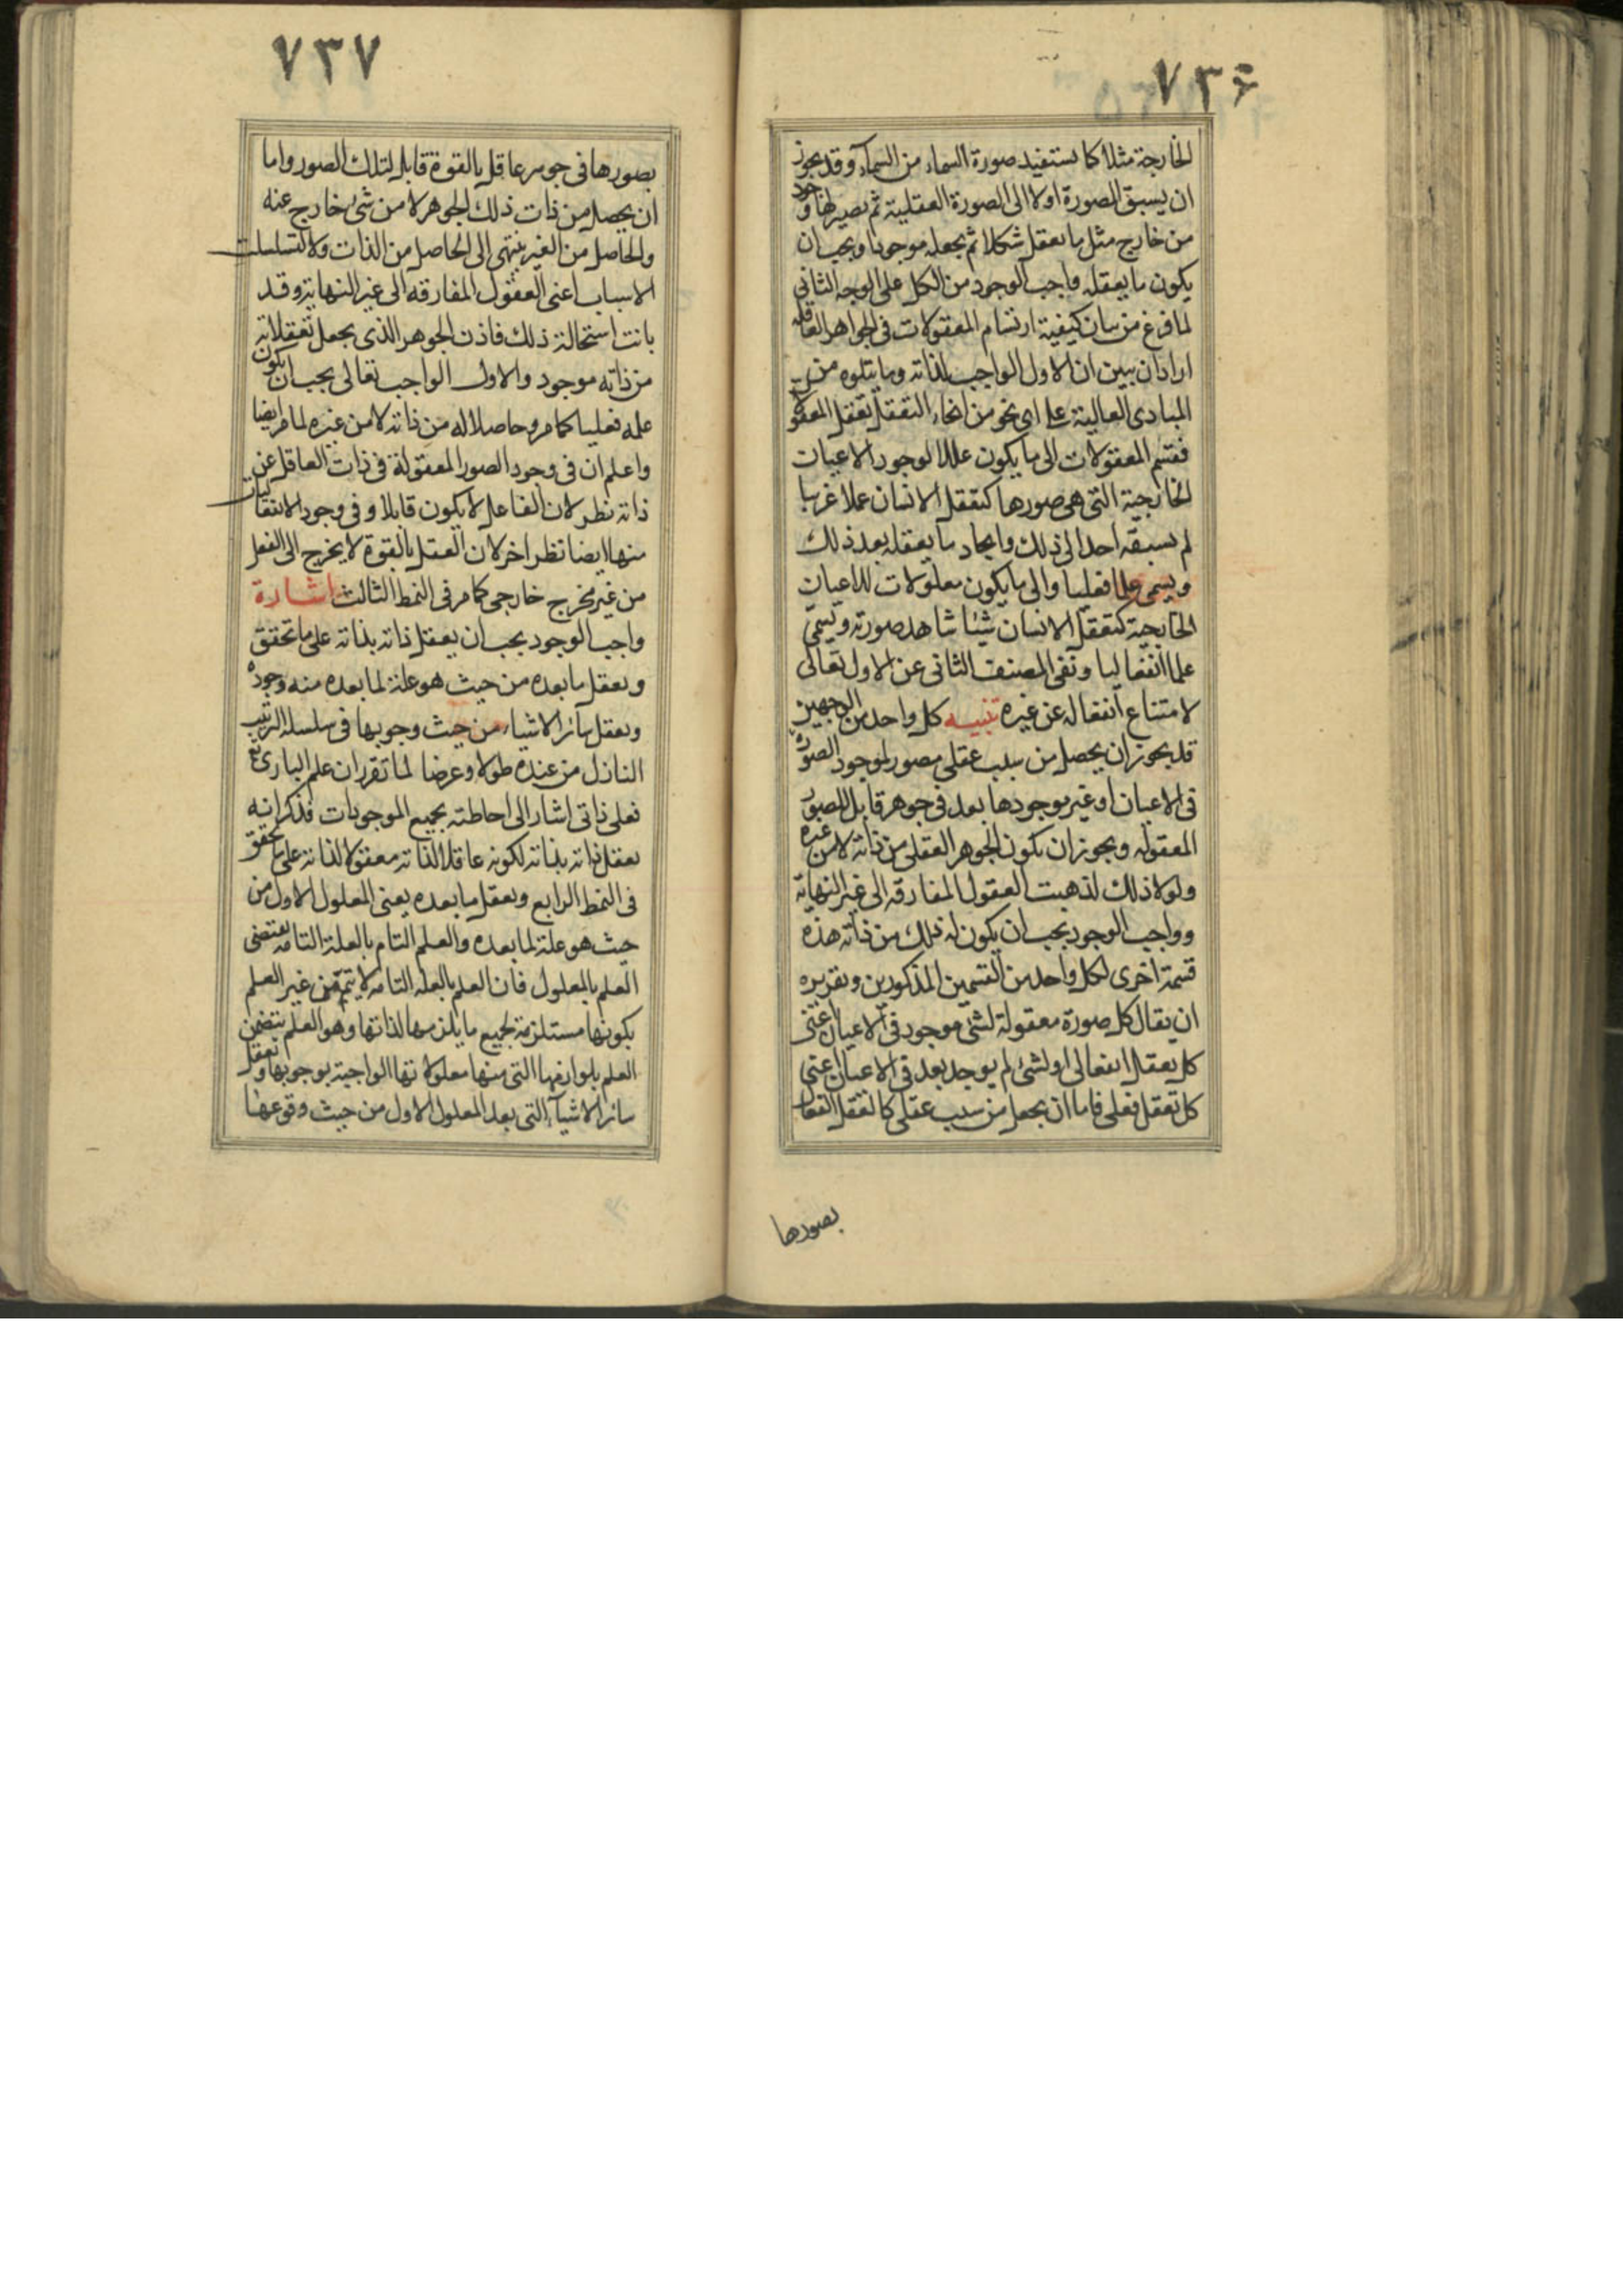 ٧٣٦
الخارجة مثلا كما يستفيد صورة السماء من السمآء وقد يجوز
ان يسبق الصورة اولا الى الصورة العقلية ثم يصير لها وجود
من خارج مثل ما يعقل شكلا ثم يجعله موجودا ويجب ان
يكون ما يعقله واجب الوجود من الكل على الوجه الثانى
لما فرغ من بيان كيفية ارتسام المعقولات فى الجواهر العاقله
اراد ان يبين ان الاول الواجب لذاته وما يتلوه من
المبادى العالية على اى نحو من انحاء التعقل تعقل المعقولات
فقسم المعقولات الى ما يكون عللا لوجود الاعيان
الخارجية التى هى صورها كتعقل الانسان عملا غريبا
لم يسبقه احد الى ذلك وايجاد ما يعقله بعد ذلك
ويسمى علما فعليا والى ما يكون معلولات للاعيان
الخارجية كتعقل الانسان شيئا شاهد صورته ويسمى
علما انفعاليا ونفى المصنف الثانى عن الاول تعالى
لامتناع انفعاله عن غيره تنبيه كل واحد من الوجهين
قد يجوز ان يحصل من سبب عقلى مصور لموجود الصورة
فى الاعيان او غير موجودها بعد فى جوهر قابل للصور
المعقوله ويجوز ان يكون للجوهر العقلى من ذاته لا من غيره
ولولا ذلك لذهبت العقول المفارقه الى غير النهاية
وواجب الوجود يجب ان يكون له ذلك من ذاته هذه
قسمة اخرى لكل واحد من القسمين المذكورين وتقريره
ان يقال كل صورة معقولة لشئ موجود فى الاعيان اعنى
كل تعقل انفعالى او لشئ لم يوجد بعد فى الاعيان اعنى
كل تعقل فعلى فاما ان يحصل من سبب عقلى كالعقل الفعال
بصورها
٧٣٧
بصورها فى جوهر عاقل بالقوة قابل لتلك الصور واما
ان يحصل من ذات ذلك الجوهر لا من شئ خارج عنه
والحاصل من الغير ينتهى الى الحاصل من الذات والا لتسلسلت
الاسباب اعنى العقول المفارقه الى غير النهاية وقد
بانت استحالة ذلك فاذن الجوهر الذى يجعل تعقلاته
من ذاته موجود والاول الواجب تعالى يجب ان يكون
علمه فعليا كما مر وحاصلا له من ذاته لا من غيره لما مر ايضا
واعلم ان فى وجود الصور المعقولة فى ذات العاقل عن
ذاته نظر لان الفاعل لا يكون قابلا وفى وجود الانفعاليات
منها ايضا نظر اخر لان العقل بالقوة لا يخرج الى الفعل
من غير مخرج خارجى كما مر فى النمط الثالث اشارة
واجب الوجود يجب ان يعقل ذاته بذاته على ما تحقق
ويعقل ما بعده من حيث هو علة لما بعده منه وجوده
ويعقل سائر الاشياء من حيث وجوبها فى سلسلة الترتيب
النازل من عنده طولا وعرضا لما تقرر ان علم البارى تع
فعلى ذاتى اشار الى احاطته بجميع الموجودات فذكر انه
يعقل ذاته بذاته لكونه عاقلا لذاته معقولا لذاته على ما تحقق
فى النمط الرابع ويعقل ما بعده يعنى المعلول الاول من
حيث هو علة لما بعده والعلم التام بالعلة التامه يقتضى
العلم بالمعلول فان العلم بالعلة التامه لا يتم من غير العلم
بكونها مستلزمة لجميع ما يلزمها لذاتها وهو العلم يتضمن
العلم بلوازمها التى منها معلولاتها الواجبة بوجوبها وتعقل
سائر الاشيآء التى بعد المعلول الاول من حيث وقوعها